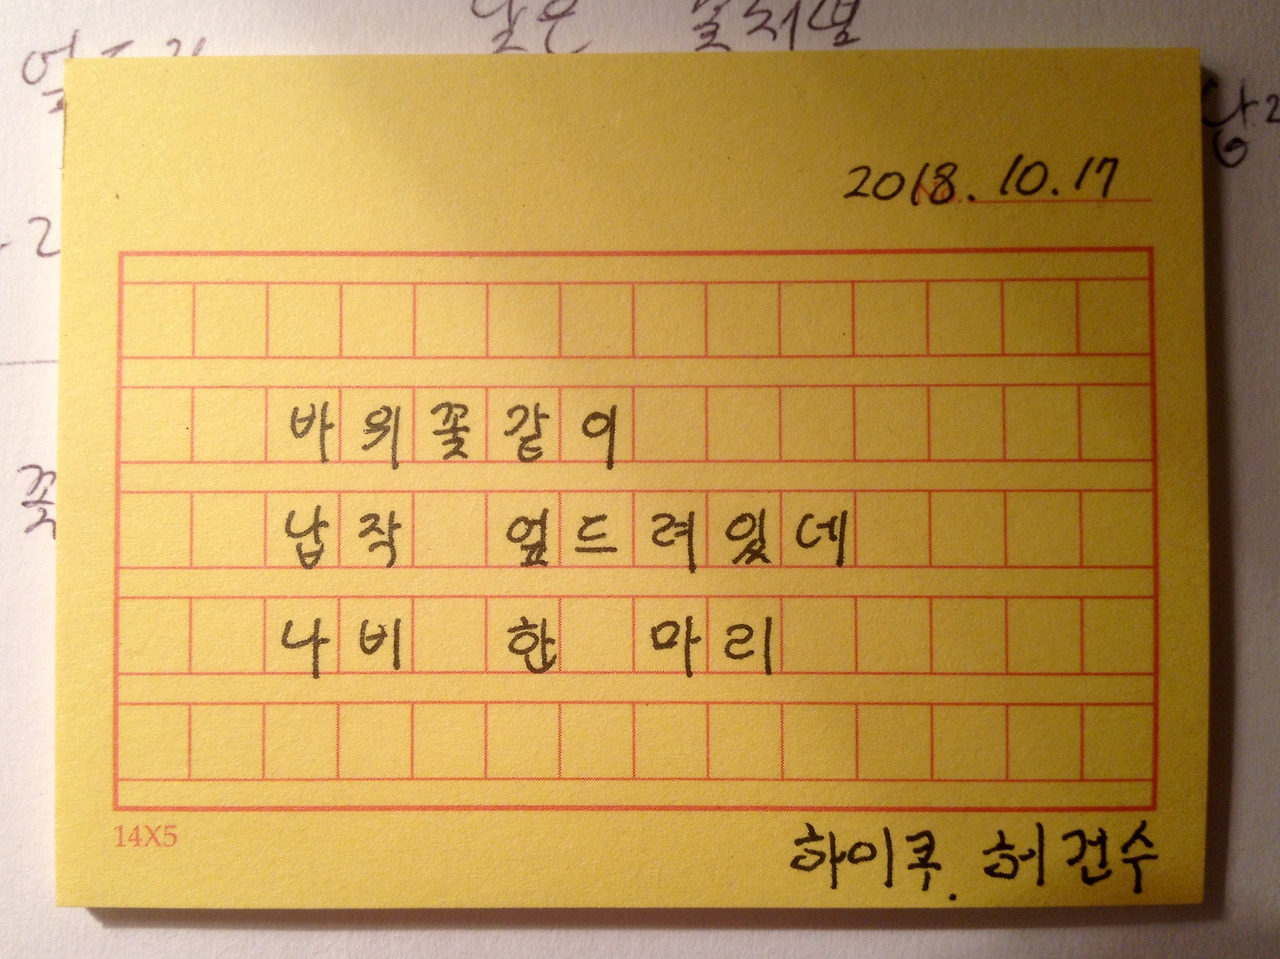 2018. 10. 17
바위꽃같이
납작 엎드려있네
나비 한 마리
14X5
하이쿠. 허건수